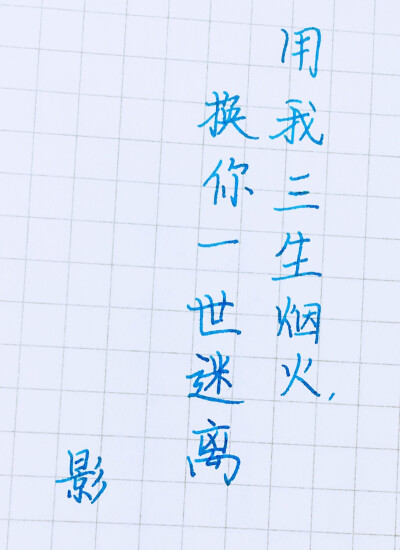 用我三生烟火,
换你一世迷离
影